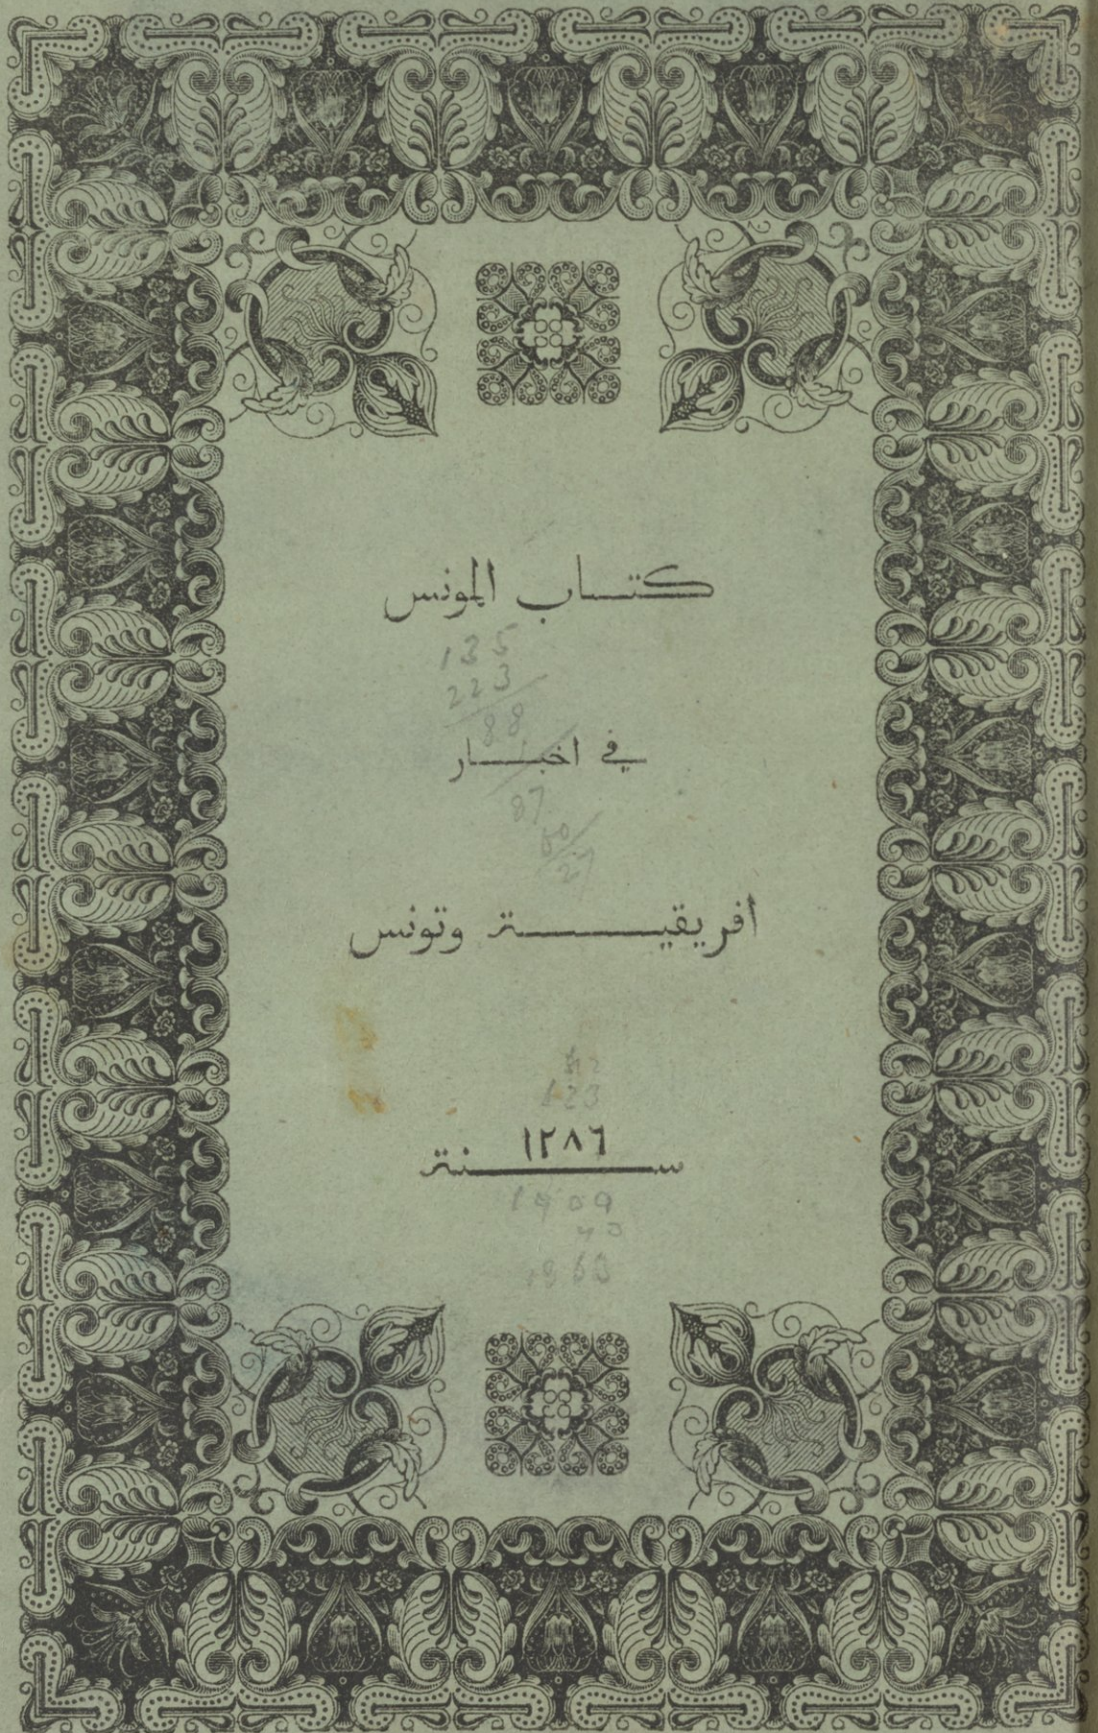 كتاب المونس
135
223
88
في اخبار
87
60
27
افريقية وتونس
123
١٢٨٦
سنة
1909
40
1863